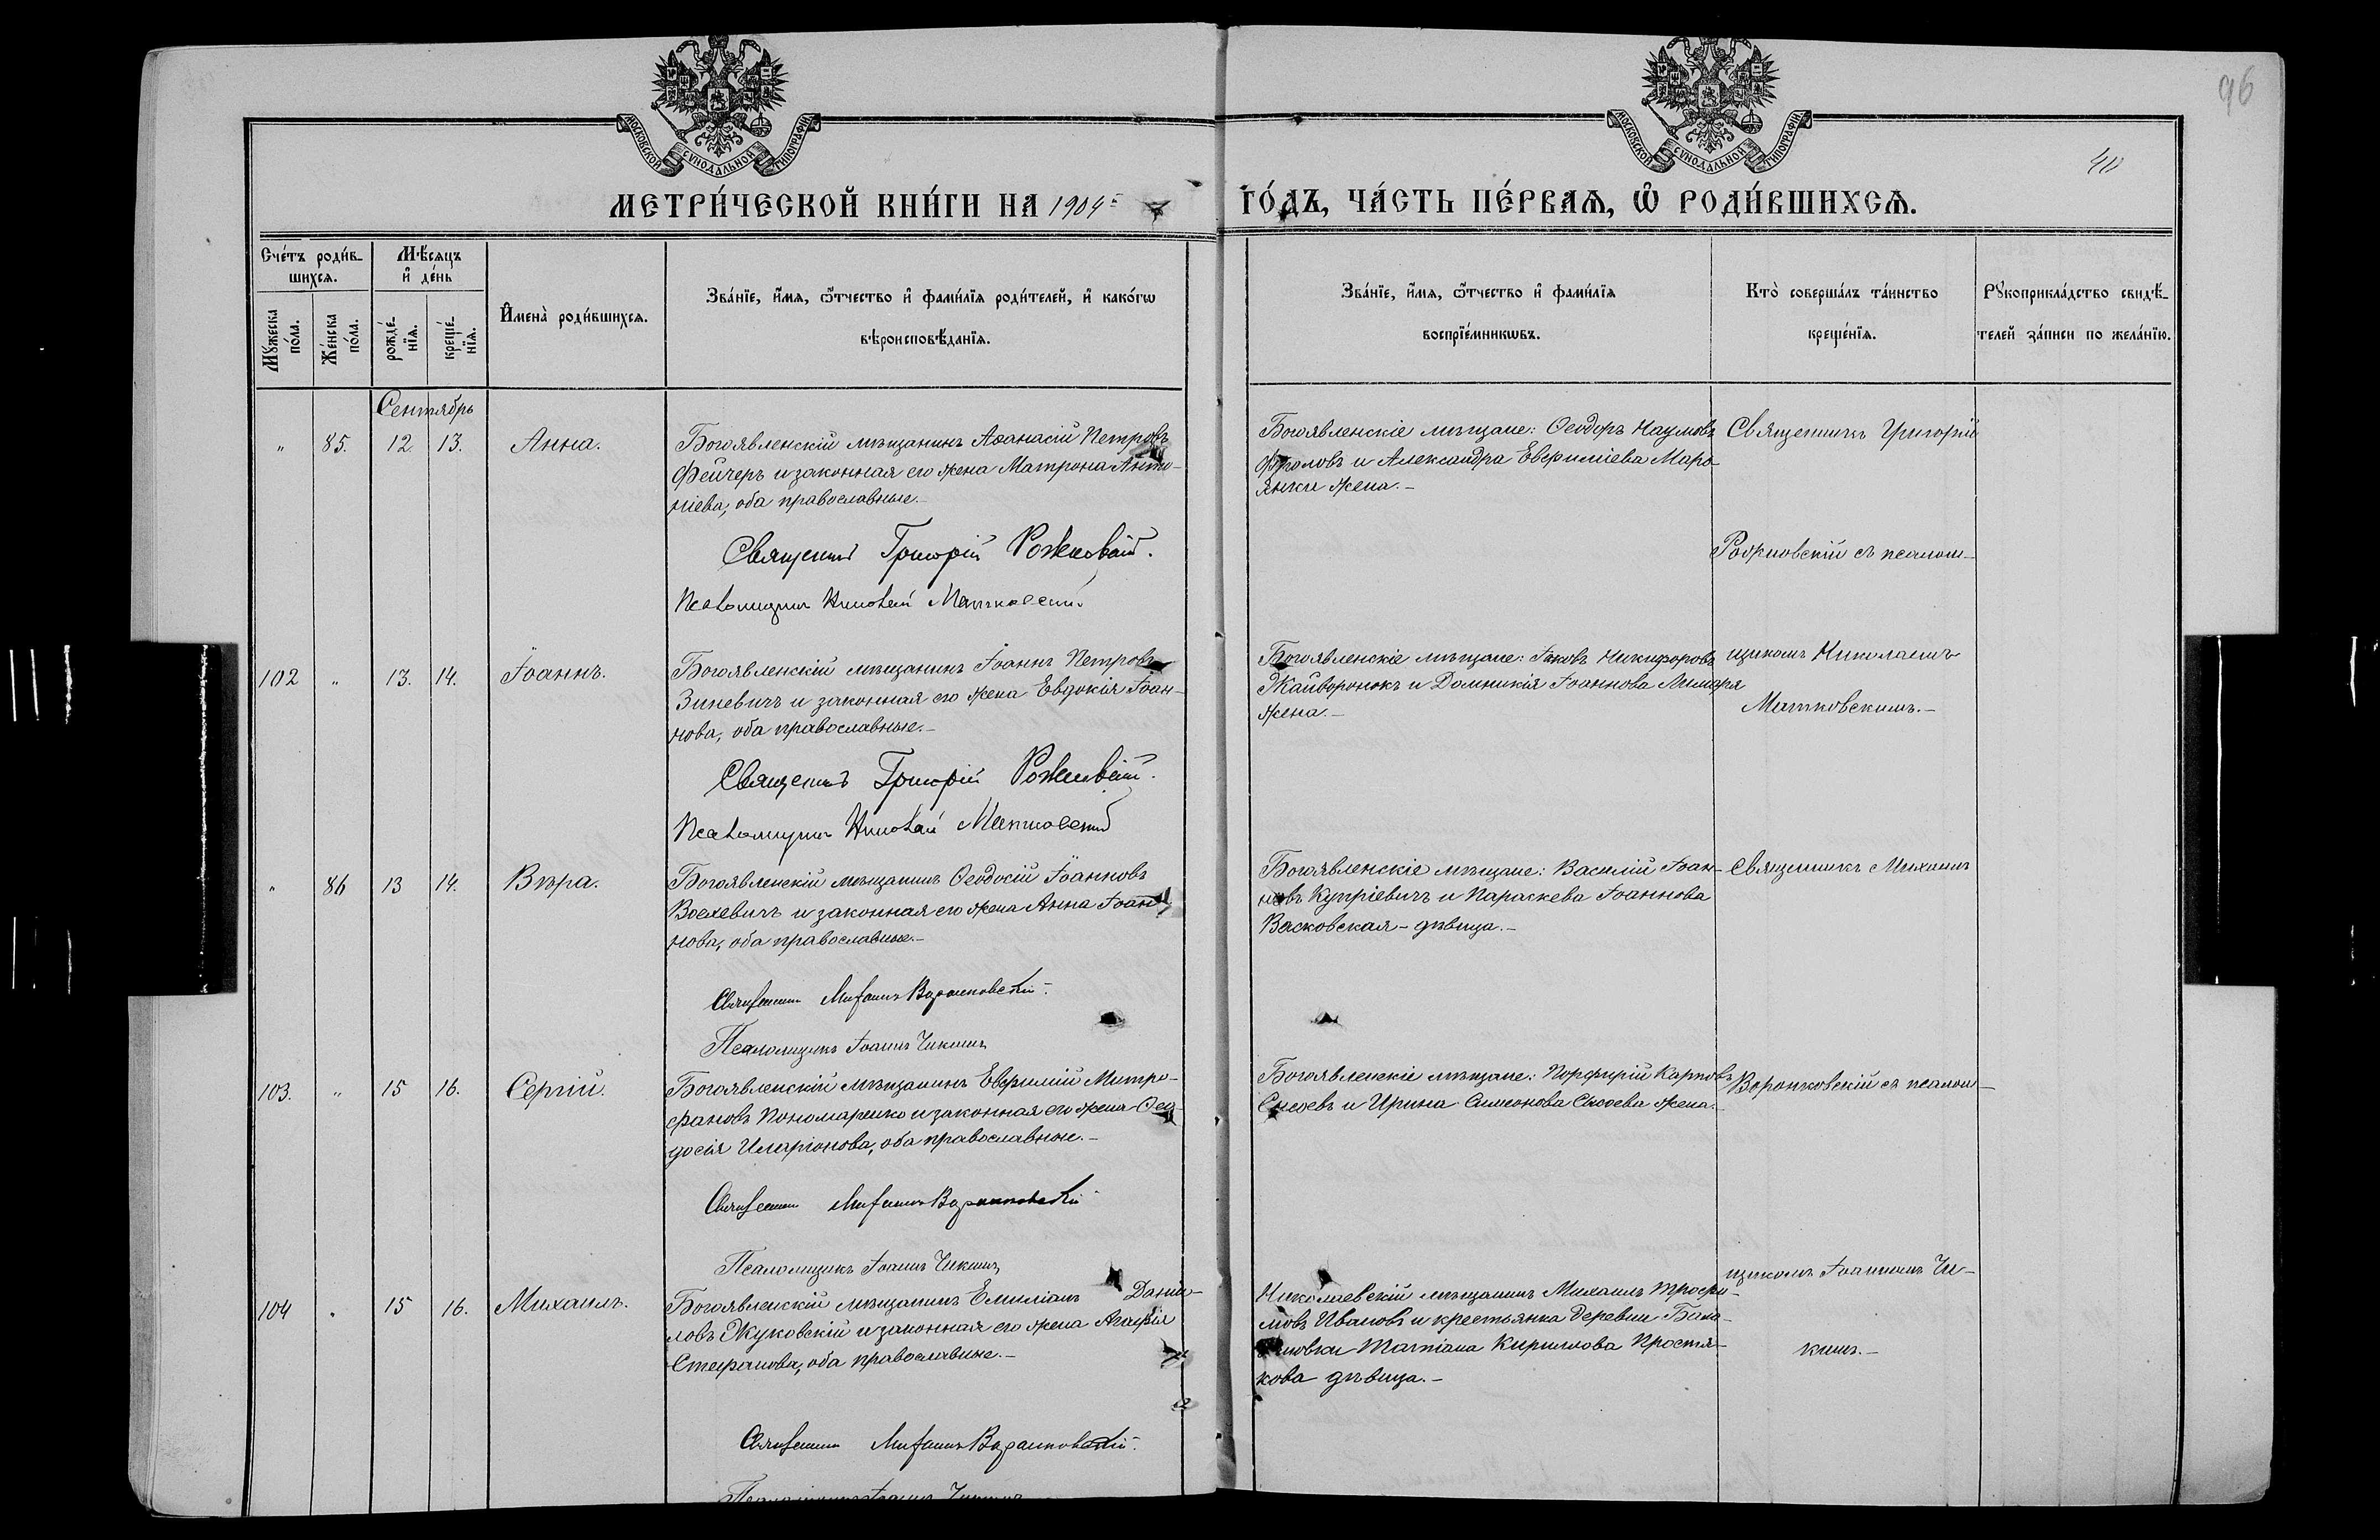 96
40
МОСКОВСКОЙ СѴНОДАЛЬНОЙ ТИПОГРАФІИ
МОСКОВСКОЙ СѴНОДАЛЬНОЙ ТИПОГРАФІИ
МЕТРИ́ЧЕСКОЙ КНИ́ГИ НА 1904 ГО́ДЪ, ЧА́СТЬ ПЕ́РВАѦ, Ѡ҆ РОДИ́ВШИХСѦ.
Сче́тъ роди́в-
шихсѧ.
Мꙋ́жеска
по́ла.
Же́нска
по́ла.
Мѣ́сѧцъ
и҆ де́нь
рожде́-
нїѧ.
креще́-
нїѧ.
И҆мена̀ роди́вшихсѧ.
Зва́нїе, и҆́мѧ, ѻ҆́тчество и҆ фами́лїѧ роди́телей, и҆ како́гѡ
вѣроисповѣ́данїѧ.
Зва́нїе, и҆́мѧ, ѻ҆́тчество и҆ фами́лїѧ
воспрїе́мникѡвъ.
Кто̀ соверша́лъ та́инство
креще́нїѧ.
Рꙋкоприкла́дство свидѣ́-
телей за́писи по жела́нїю.
Сентябрь
" 85. 12 13. Анна.
Богоявленскій мѣщанинъ Аѳанасій Петровъ
Фейчеръ и законная его жена Матрона Анто-
ніева, оба православные.-
Священникъ Григорій
Псаломщикъ Николай Матковскій
Богоявленскіе мѣщане: Ѳеодоръ Наумовъ
Фроловъ и Александра Евфиміева Маро-
жена.-
Священникъ Григорій
съ псалом-
102 " 13. 14. Іоаннъ.
Богоявленскій мѣщанинъ Іоаннъ Петровъ
Зиневичъ и законная его жена Евдокія Іоан-
нова, оба православные.-
Священникъ Григорій
Псаломщикъ Николай Матковскій
Богоявленскіе мѣщане: Іаковъ Никифоровъ
Жайворонокъ и Домникія Іоаннова
жена.-
щикомъ Николаемъ
Матковскимъ.-
" 86 13 14. Вѣра.
Богоявленскій мѣщанинъ Ѳеодосій Іоанновъ
и законная его жена Анна Іоан-
нова, оба православные.-
Священникъ Михаилъ Воронковскій.
Псаломщикъ Іоаннъ Чикинъ
Богоявленскіе мѣщане: Василій Іоан-
новъ Купріевичъ и Параскева Іоаннова
Васковская - дѣвица.-
Священникъ Михаилъ
103. " 15 16. Сергій.
Богоявленскій мѣщанинъ Евфимій Митро-
фановъ Пономаренко и законная его жена Ѳео-
досія Иларіонова, оба православные.-
Священникъ Михаилъ Воронковскій
Псаломщикъ Іоаннъ Чикинъ
Богоявленскіе мѣщане: Порфирій Карповъ
Сысоевъ и Ирина Симеонова Сысоева жена.-
Воронковскій съ псалом-
104 " 15 16. Михаилъ.
Богоявленскій мѣщанинъ Емиліанъ Дани-
ловъ Жуковскій и законная его жена Агафія
Стефанова, оба православные.-
Священникъ Михаилъ Воронковскій.
Псаломщикъ Іоаннъ Чикинъ
Николаевскій мѣщанинъ Михаилъ Трофи-
мовъ Ивановъ и крестьянка деревни
Татіана Кириллова Простя-
кова дѣвица.-
щикомъ Іоанномъ Чи-
кинъ.-